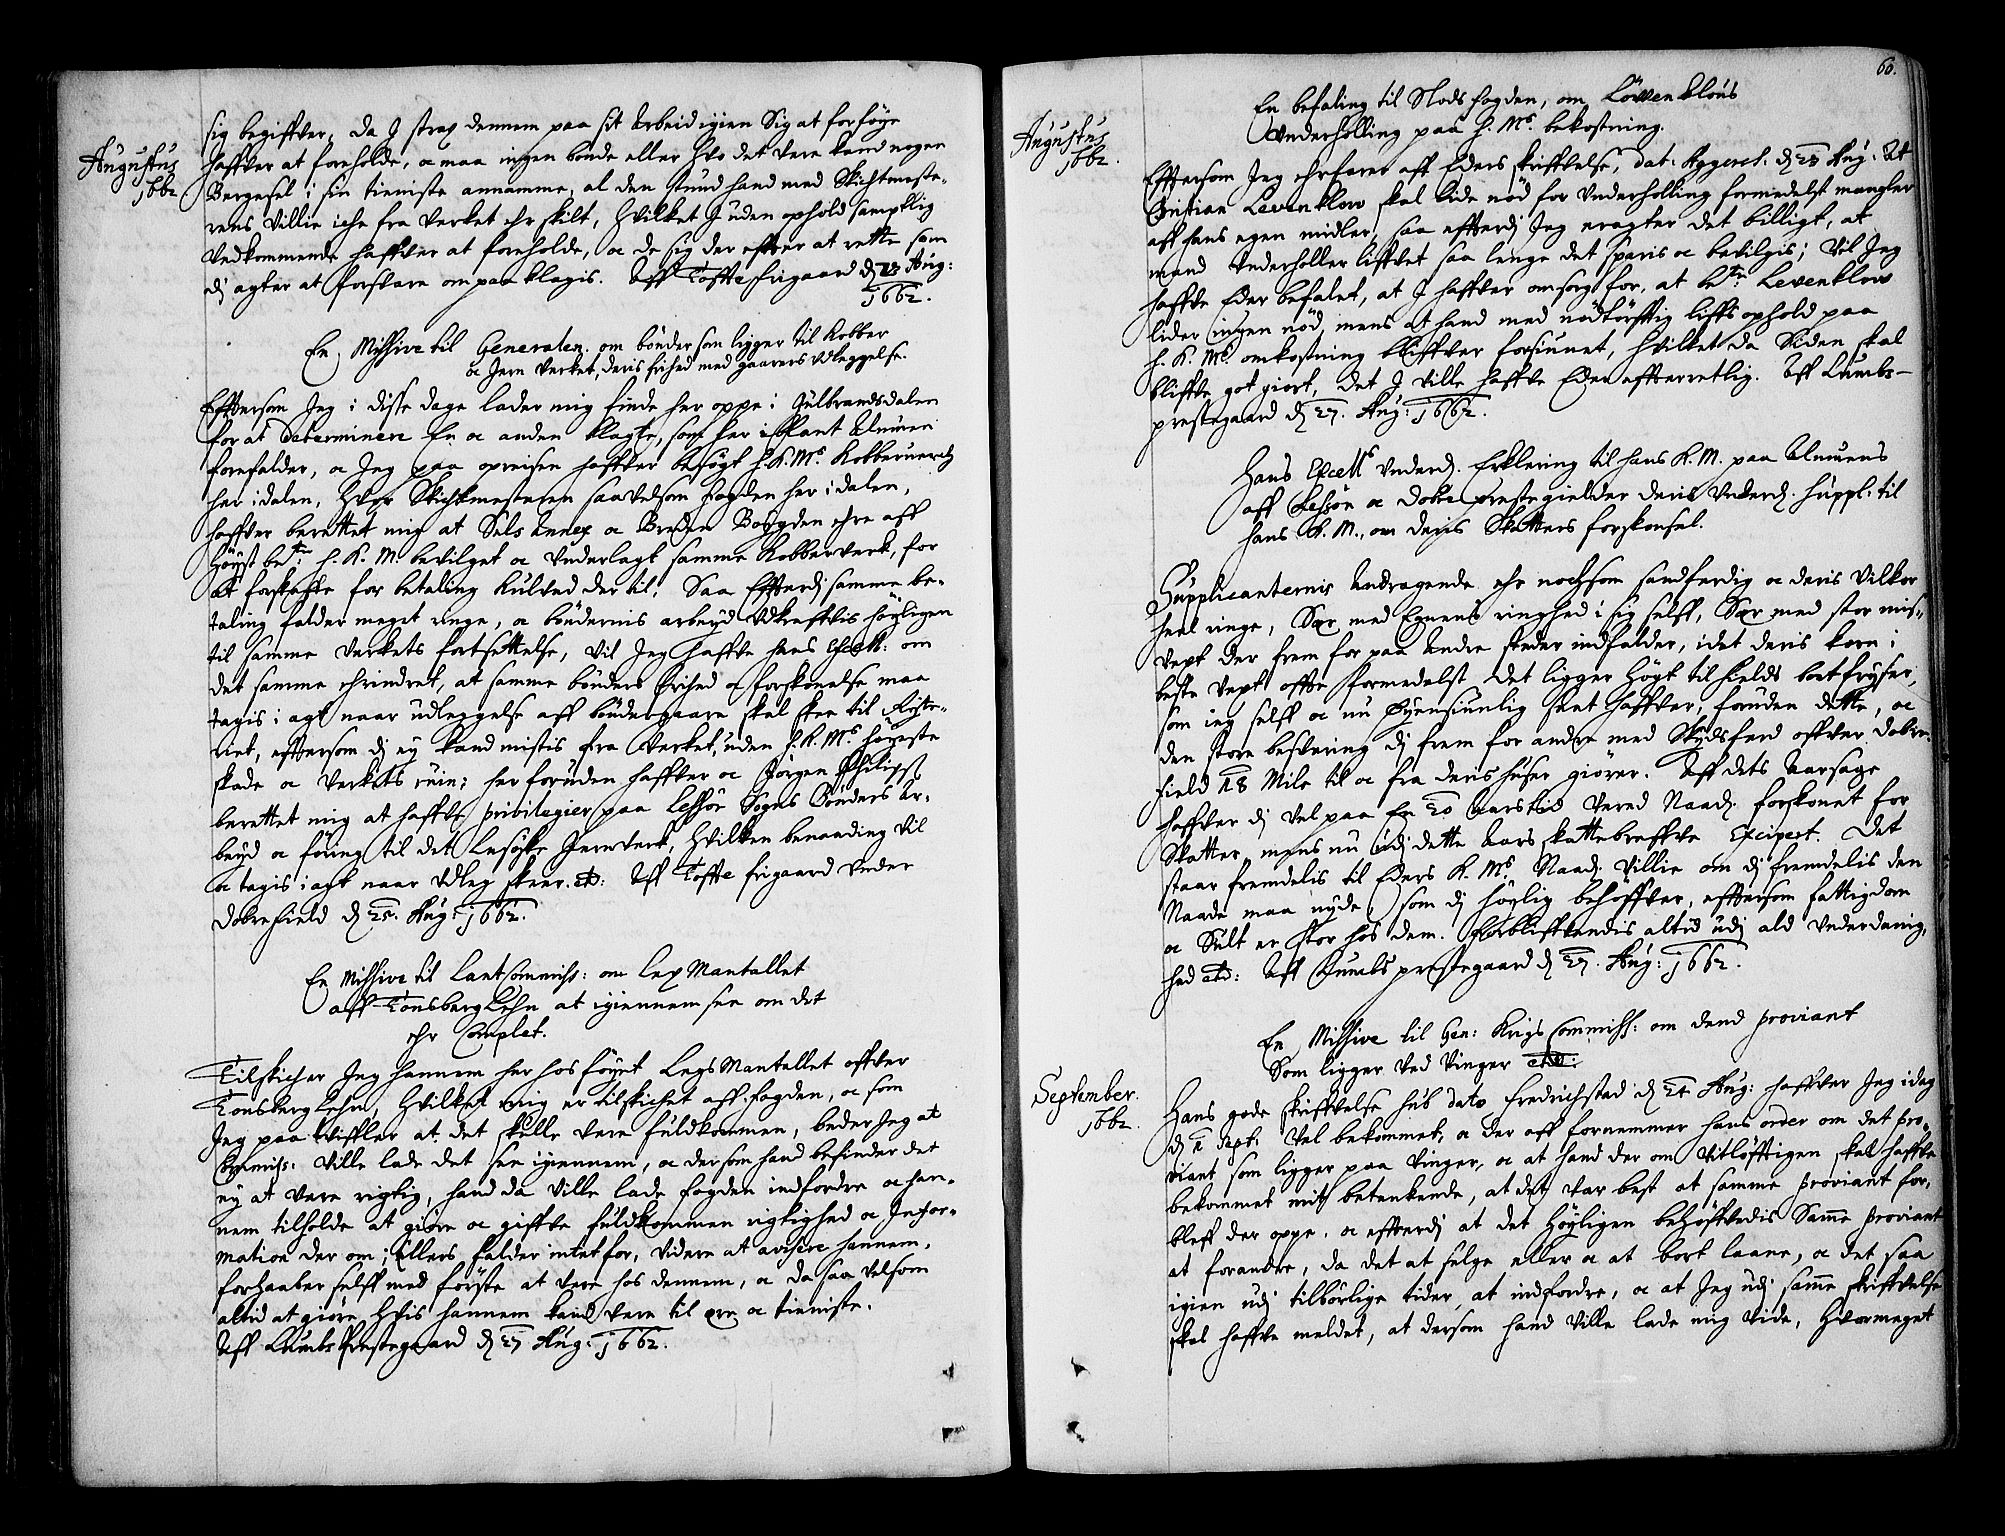 Augustus
1662
sig begiffver, da J strax dennem paa sit Arbeid igien Sig at forföye
haffver at foreholde, oc maa ingen bonde eller hvo det vere kand nogen
Bergesel i sin tieniste annamme, al den stund hand med Skichtmeste-
rens Villie iche fra Verket ehr skilt, Hvilket J uden ophold samptlig
Vedkommende haffver at foreholde, oc de sig der effter at rette som
di agter at forsvare om paaklagis. Aff Toffte frigaard d 25 Aug:
1662.
En Missive til Generalen, om bönder som ligger til Kobber
oc Jern Verket, deris frihed med gaarers Vdleggelse.
Efftersom Jeg i disse dage lader mig finde her oppe i Gulbrandsdalen
for at determinere En oc anden klagte, som her iblant Almuen
forefalder, oc Jeg paa opreisen haffver besögt H. K. Ms. Kobberverch
her i dalen, Hvor Skichtmesteren saavelsom fogden her i dalen,
haffver berettet mig at Sels Annex oc Breden Boygden ehre aff
Höyst be:te H. K. M. bevilget oc Vnderlagt samme Kobberverk, for
at forskaffe for betaling Kulved der til; Saa Effterdj samme be-
taling falder meget ringe, oc böndernis arbeyd Vdkreffvis höyligen
til samme Verkets fortsettelse, Vil Jeg haffve Hans Excell: om
det samme ehrindret, at samme bönders frihed oc forskonelse maa
tagis i agt naar udleggelse aff böndergaare skal skee til Rytte-
riet, efftersom di ey kand mistis fra Verket, uden H. K. Ms. höyeste
skade oc Verkets ruin; her foruden haffver oc Jörgen Philipss
berettet mig at haffve privilegier paa Lessöe Sogns Bönders Ar-
beyd oc föring til det Lesöyske Jernverk, Hvilken benaading vil
oc tagis i agt naar Vdleg skeer. etc: Aff Toffte frigaard under
Dobrefield d 25. Aug: 1662.
En Missive til Lant Commiss: om Lex Mantallet
aff Tonsberg Lehn at igiennem see om det
ehr Complet.
Tilskicher Jeg hannem her hos föyet Legs Mantallet offver
Tonsberg Lehn, Hvilket mig er tilskichet aff fogden, oc som
Jeg paa tviffler at det skulle vere fuldkommen, beder Jeg at
Commiss: ville lade det see igiennem, oc dersom hand befinder det
ey at Vere rigtig, hand da ville lade fogden indfordre oc han-
nem tilholde at giöre oc giffve fuldkommen rigtighed oc Infor-
mation der om; Ellers falder intet for, Videre at avisere hannem,
forhaaber selff med förste at vere hos dennem, oc da saa velsom
altid at giöre Hvis hannem kand Vere til ære oc tieniste.
Aff Lumbs Prestegaard d 27 Aug: 1662.
60.
Augustus
1662.
En befaling til Slods fogden, om Löwenklous
Vnderholling paa H. Ms. bekostning.
Efftersom Jeg ehrfarer aff Eders skriffvelse, dat: Aggersh: d 23 Aug: At
Christian Levenklow skal lide nöd for Vnderholling formedelst mangler
aff hans egen midler, saa effterdi Jeg eragter det billigt, at
mand Vnderholler liffvet saa lenge det sparis oc bevilgis; Vil Jeg
haffve Eder befalet, at J haffver omsorg for, at be:te Levenklow
lider ingen nöd, mens at hand med nödtörfftig liffs ophold paa
H. K. Ms. omkostning bliffver forsiunet, Hvilket da Siden skal
bliffve got giort, det J ville haffve Eder effterretlig. Aff Lumbs-
prestegaard d 27. Aug: 1662.
Hans Excells Vnderd. Erklering til hans K. M. paa Almuens
aff Lessöe oc Dobre prestegielder deris Vnderd. Suppl: til
hans K. M., om deris Skatters forskonsel.
Supplicanternis Andragende ehr nochsom sandferdig oc deris Vilkor
heel ringe, Saa med Egnens ringhed i sig selff, Saa med stor mis-
vext der frem for paa Andre steder indfalder, idet deris korn i
beste vext offte formedelst det ligger Högt til fields bortfryser,
som ieg selff oc nu Öyensiunlig seet haffver, foruden dette, oc
den store besvering di frem for andre med Skydsferd offver Dobre-
field 18 Mile til oc fra deris huser giörer. Aff dets Aarsage
haffver di vel paa En 20 Aars tid vered Naadj. forskonet for
Skatter, mens nu udi dette Aars skattebreffve Excipert. Det
staar fremdelis til Eders K. Ms. Naadj. Villie om di fremdelis den
Naade maa nyde som di höylig behöffver, efftersom fattigdom
oc Sult er stor hos dem. Forbliffvendis altid udi ald Vnderdanig-
hed etc: Aff Lumbs prestegaard d 27. Aug: 1662.
En Missive til Gen: Krigs Commiss: om dend proviant
Som ligger Ved Vinger etc:
September.
1662.
Hans gode skriffvelse sub dato Fredrichstad d 21 Aug: haffver Jeg idag
d 2 Sept: Vel bekommet, oc der aff fornemmer hans order om det pro-
viant som ligger paa Vinger, oc at hand der om Vitlöfftigen skal haffve
bekommet mit betenkende, at det var best at samme proviant for-
bleff der oppe. oc effterdi at det Höyligen behöffvedis Samme proviant
at forandre, da det at selge eller oc at bort laane, oc det saa
igien udi tilbörlige tider at indfordre, oc at Jeg udi samme skriffvelse
skal haffve meldet, at dersom hand ville lade mig vide, Hvormeget